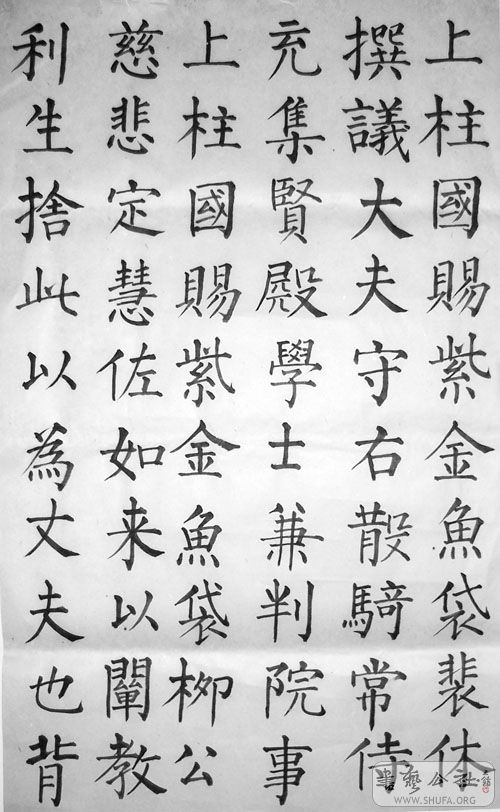 上柱國賜紫金魚袋裴休
撰議大夫守右散騎常侍
充集賢殿學士兼判院事
上柱國賜紫金魚袋柳公
慈悲定慧佐如来以闡教
利生捨此以為丈夫也背
書藝公社
WWW.SHUFA.ORG